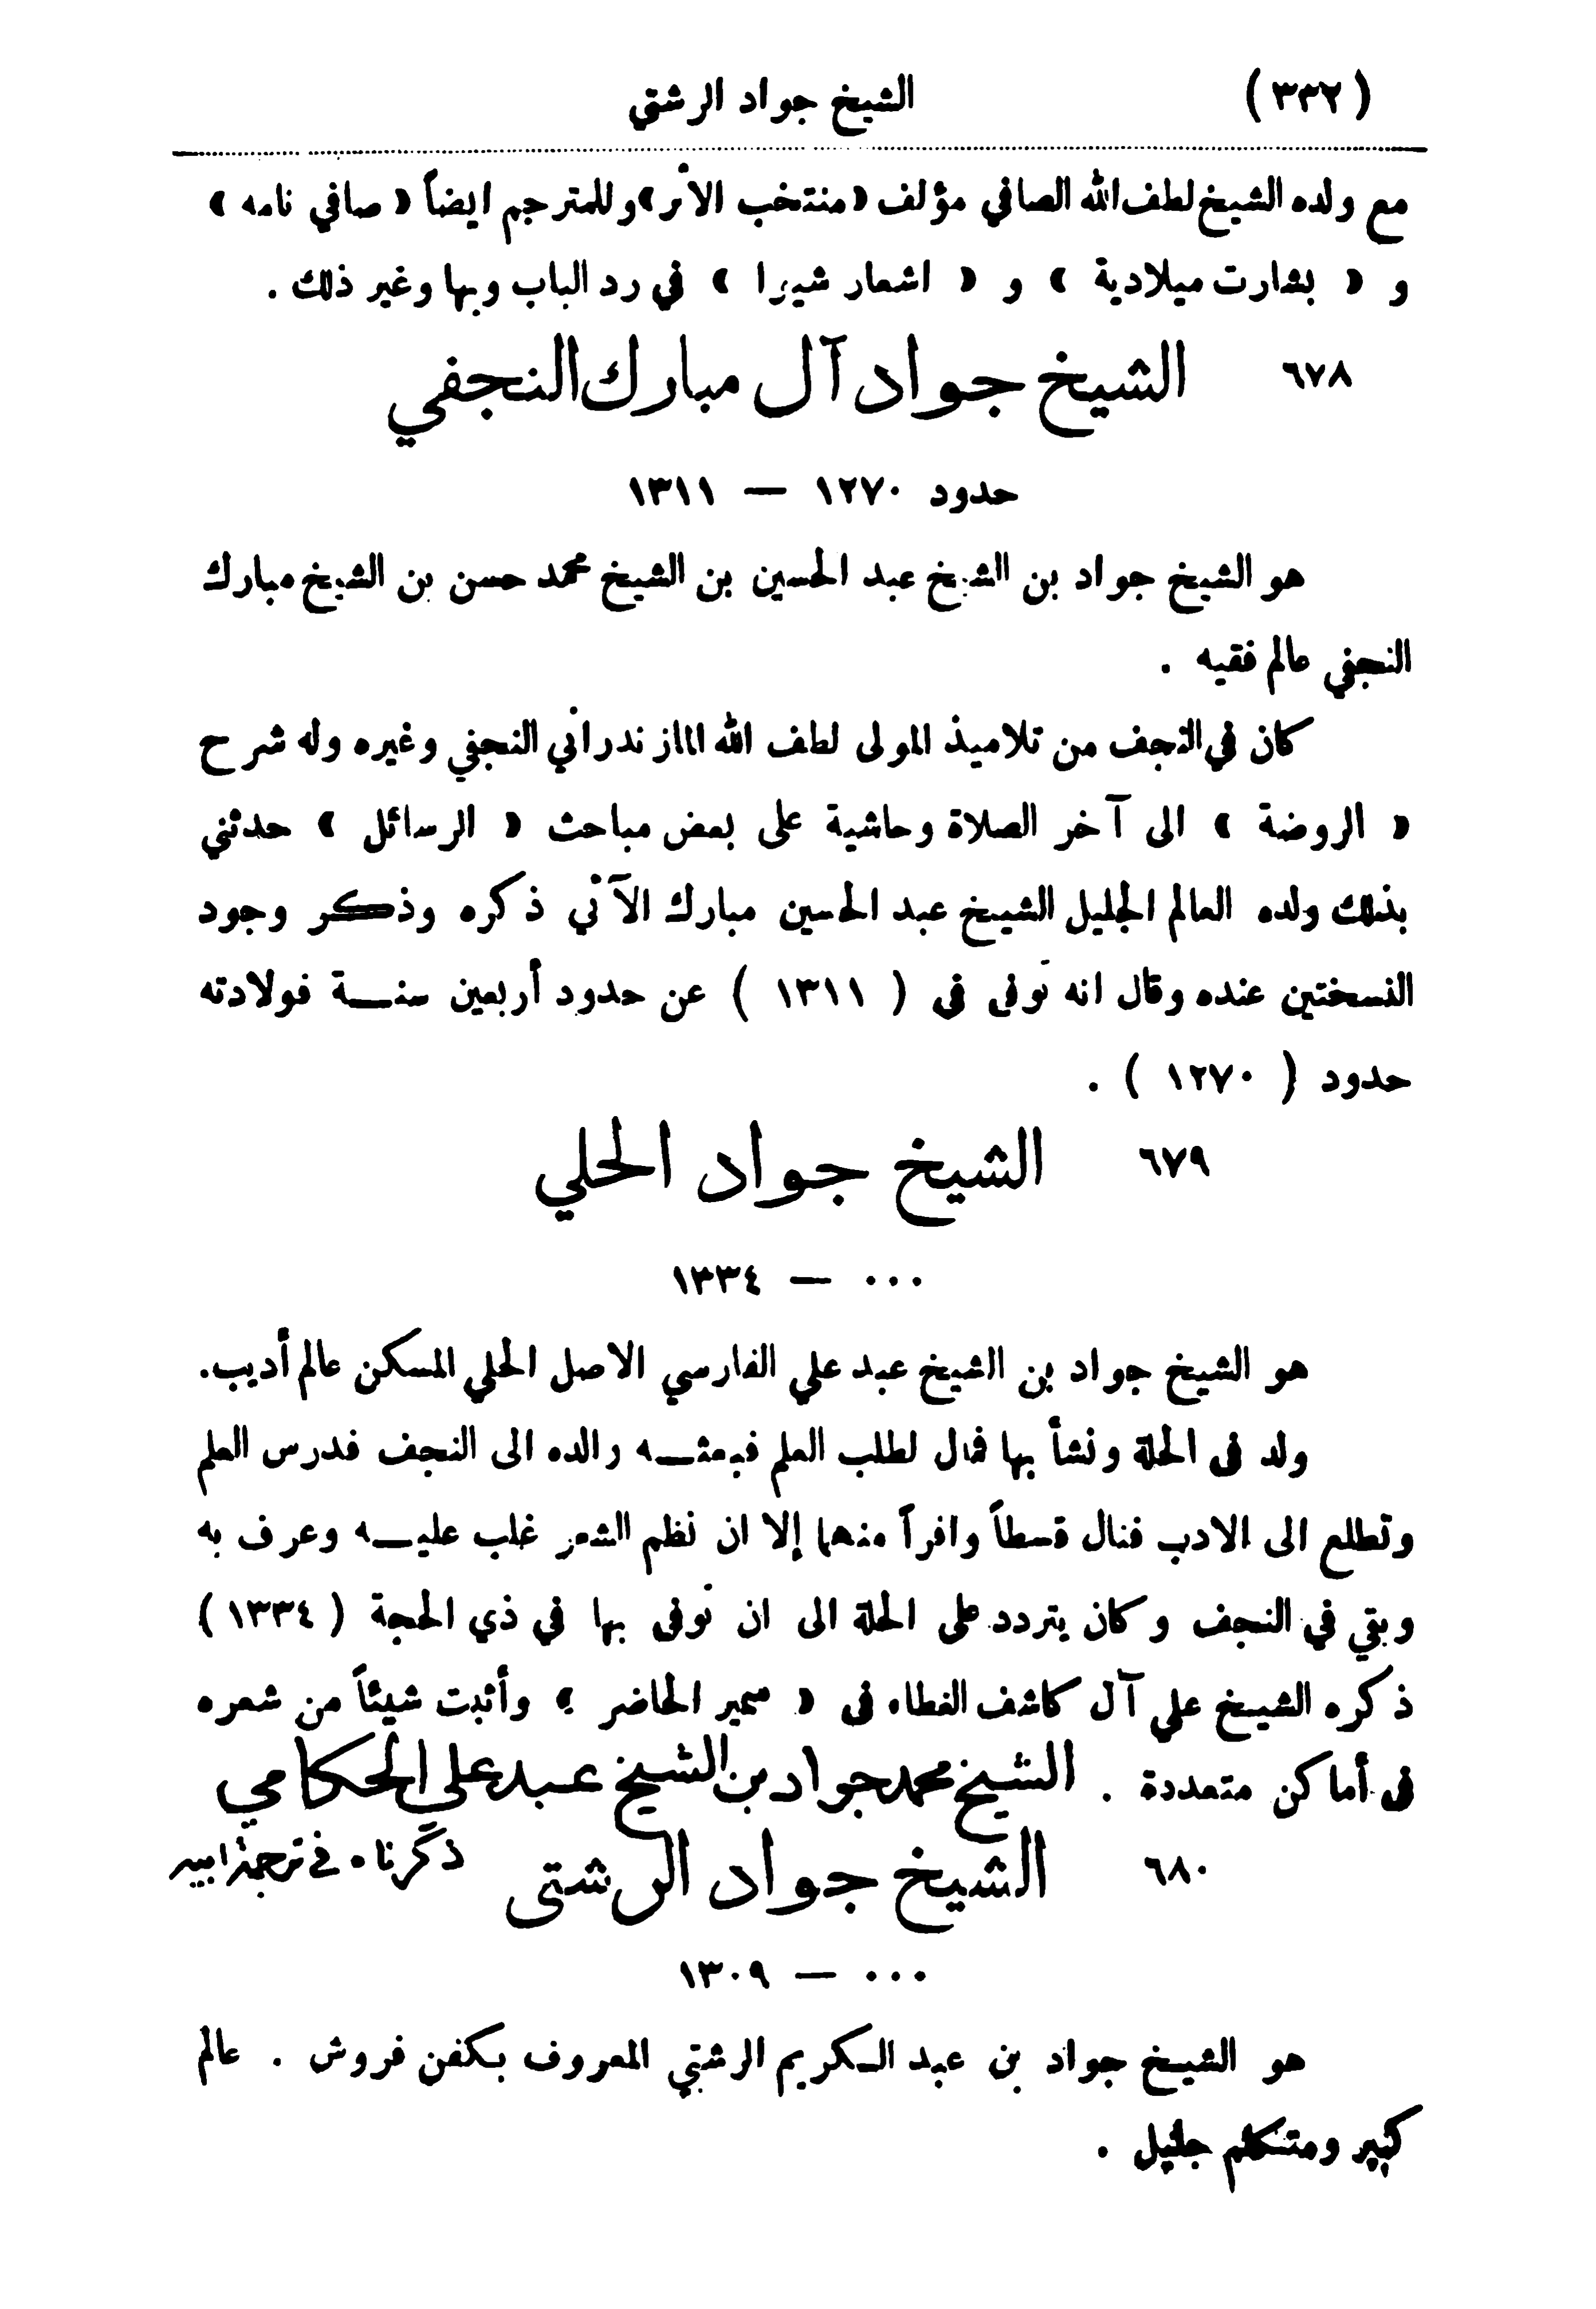 (٣٣٢) الشيخ جواد الرشتي
مع ولده الشيخ لطف الله الصافي مؤلف «منتخب الاثر» وللمترجم ايضاً « صافي نامه »
و « بشارت ميلادية » و « اشعار شيرا » في رد الباب وبها وغير ذلك .
٦٧٨ الشيخ جواد آل مبارك النجفي
حدود ١٢٧٠ — ١٣١١
هو الشيخ جواد بن الشيخ عبد الحسين بن الشيخ محمد حسن بن الشيخ مبارك
النجفي عالم فقيه .
كان في النجف من تلاميذ المولى لطف الله المازندراني النجفي وغيره وله شرح
« الروضة » الى آخر الصلاة وحاشية على بعض مباحث « الرسائل » حدثني
بذلك ولده العالم الجليل الشيخ عبد الحسين مبارك الآتي ذكره وذكر وجود
النسختين عنده وقال انه توفى في ( ١٣١١ ) عن حدود أربعين سنة فولادته
حدود ( ١٢٧٠ ) .
٦٧٩ الشيخ جواد الحلي
... — ١٣٣٤
هو الشيخ جواد بن الشيخ عبد علي الفارسي الاصل الحلي المسكن عالم أديب.
ولد في الحلة ونشأ بها فمال لطلب العلم فبعثه والده الى النجف فدرس العلم
وتطلع الى الادب فنال قسطاً وافراً منهما إلا ان نظم الشعر غلب عليه وعرف به
وبقي في النجف وكان يتردد على الحلة الى ان توفى بها في ذي الحجة ( ١٣٣٤ )
ذكره الشيخ علي آل كاشف الغطاء في « سمير الحاضر » وأثبت شيئاً من شعره
في أماكن متعددة . الشيخ محمد جواد بن الشيخ عبد علي الحكامي
ذكرناه في ترجمة ابيه
٦٨٠ الشيخ جواد الرشتي
... — ١٣٠٩
هو الشيخ جواد بن عبد الكريم الرشتي المعروف بكفن فروش . عالم
كبير ومتكلم جليل .